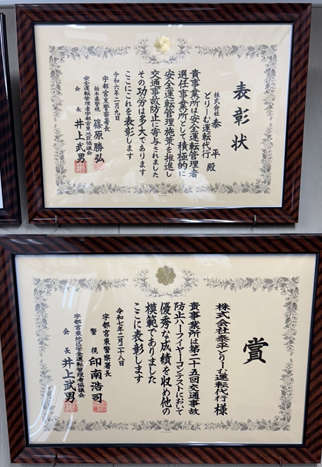 表彰状
株式会社 泰平
とりーむ運転代行 殿
貴事業所は安全運転管理者
選任事業所として積極的に
安全運転管理施策を推進し
交通事故防止に寄与されました
その功労は多大であります
ここにこれを表彰します
令和六年二月九日
宇都宮東警察署長
篠原勝弘
安全運転管理者宇都宮東地区協議会
会長 井上武男
賞
株式会社泰平とりーむ運転代行 様
貴事業所は第二十五回交通事故
防止ハーフイヤーコンテストにおいて
優秀な成績を収め他の
模範でありました
ここに表彰します
令和七年二月二十八日
宇都宮東警察署長
警視 印南浩司
宇都宮東地区安全運転管理者協議会
会長 井上武男